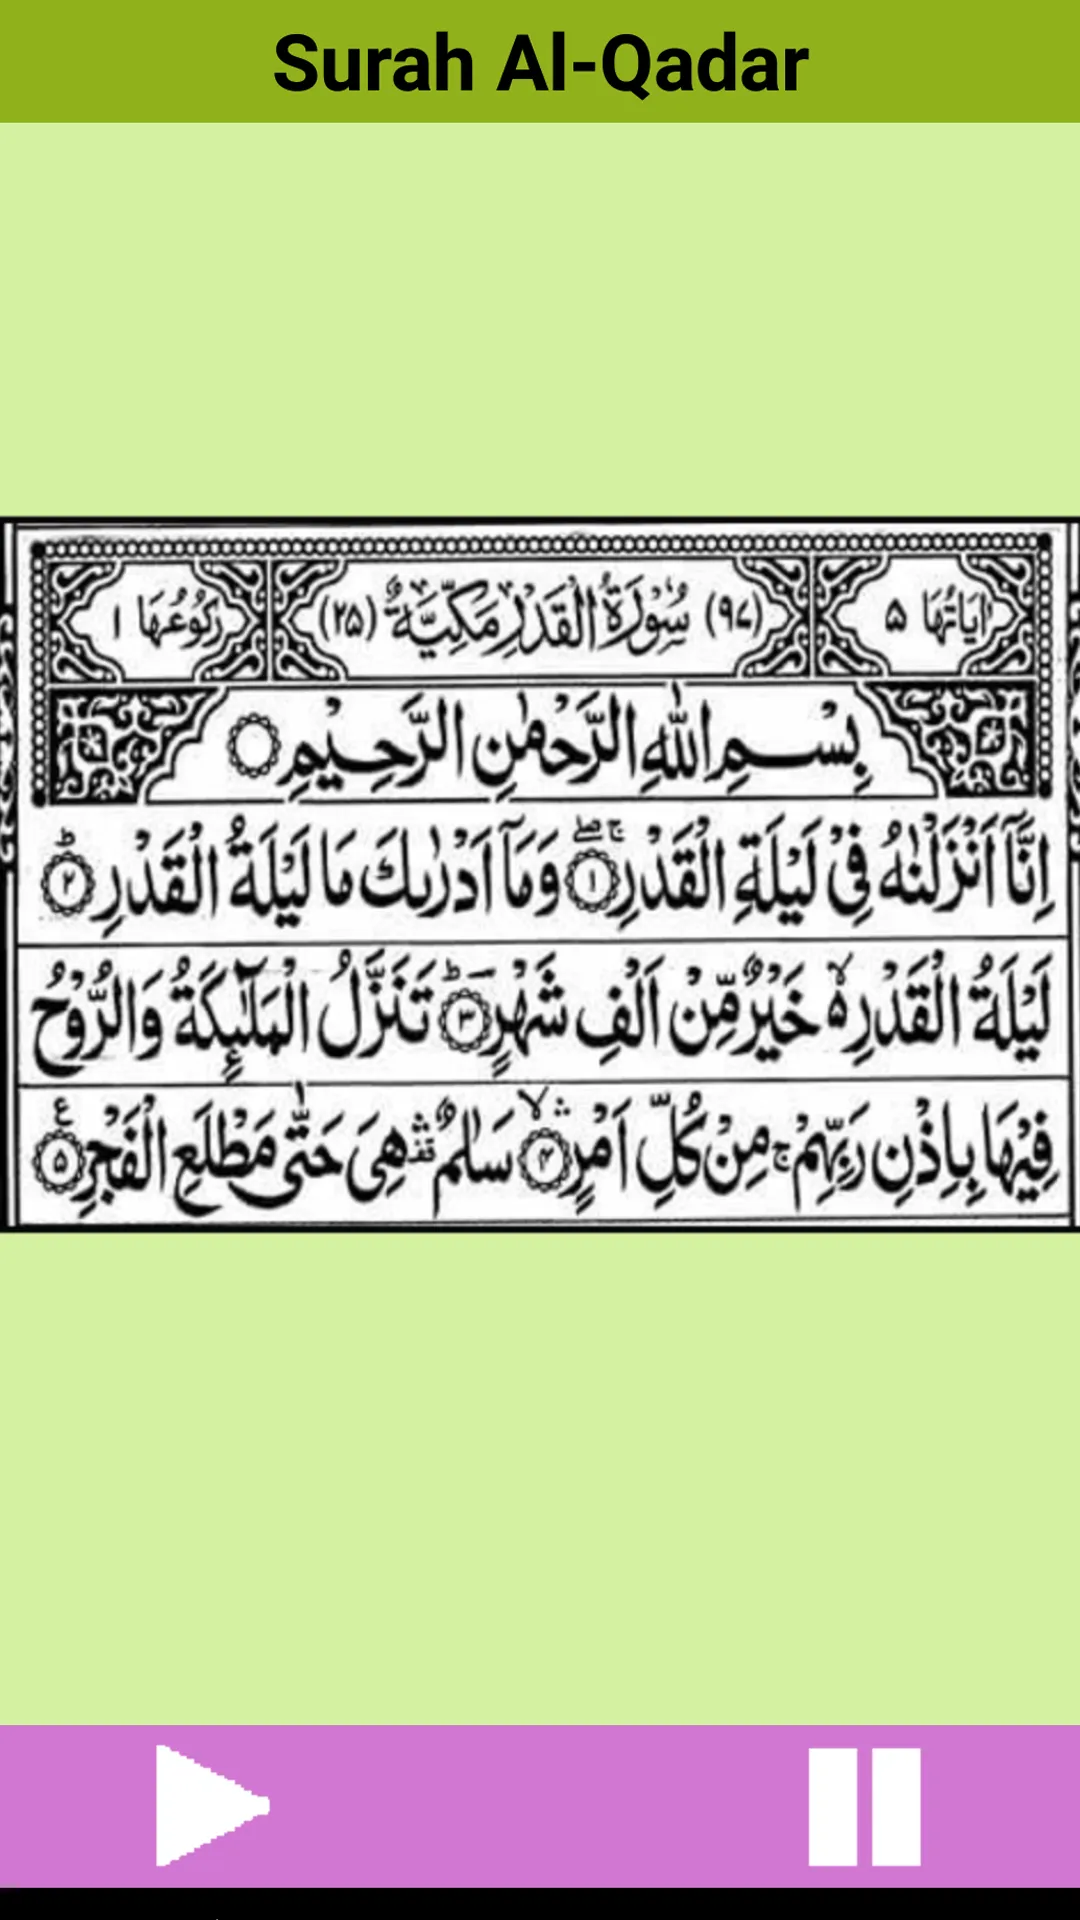 Surah Al-Qadar
اٰيَاتُهَا ۵ (۹۷) سُوْرَةُ الْقَدْرِ مَكِّيَّةٌ (۲۵) رُكُوْعُهَا ۱
بِسْمِ اللّٰهِ الرَّحْمٰنِ الرَّحِيْمِ ۝
اِنَّاۤ اَنْزَلْنٰهُ فِيْ لَيْلَةِ الْقَدْرِ ۝۱ ۚۖ وَمَاۤ اَدْرٰىكَ مَا لَيْلَةُ الْقَدْرِ ۝۲ ؕ
لَيْلَةُ الْقَدْرِ ۙ۬ خَيْرٌ مِّنْ اَلْفِ شَهْرٍ ۝۳ ؕ تَنَزَّلُ الْمَلٰٓئِكَةُ وَالرُّوْحُ
فِيْهَا بِاِذْنِ رَبِّهِمْ ۚ مِنْ كُلِّ اَمْرٍ ۝۴ ۙۛ سَلٰمٌ ۛ۫ هِيَ حَتّٰى مَطْلَعِ الْفَجْرِ ۝۵ ع